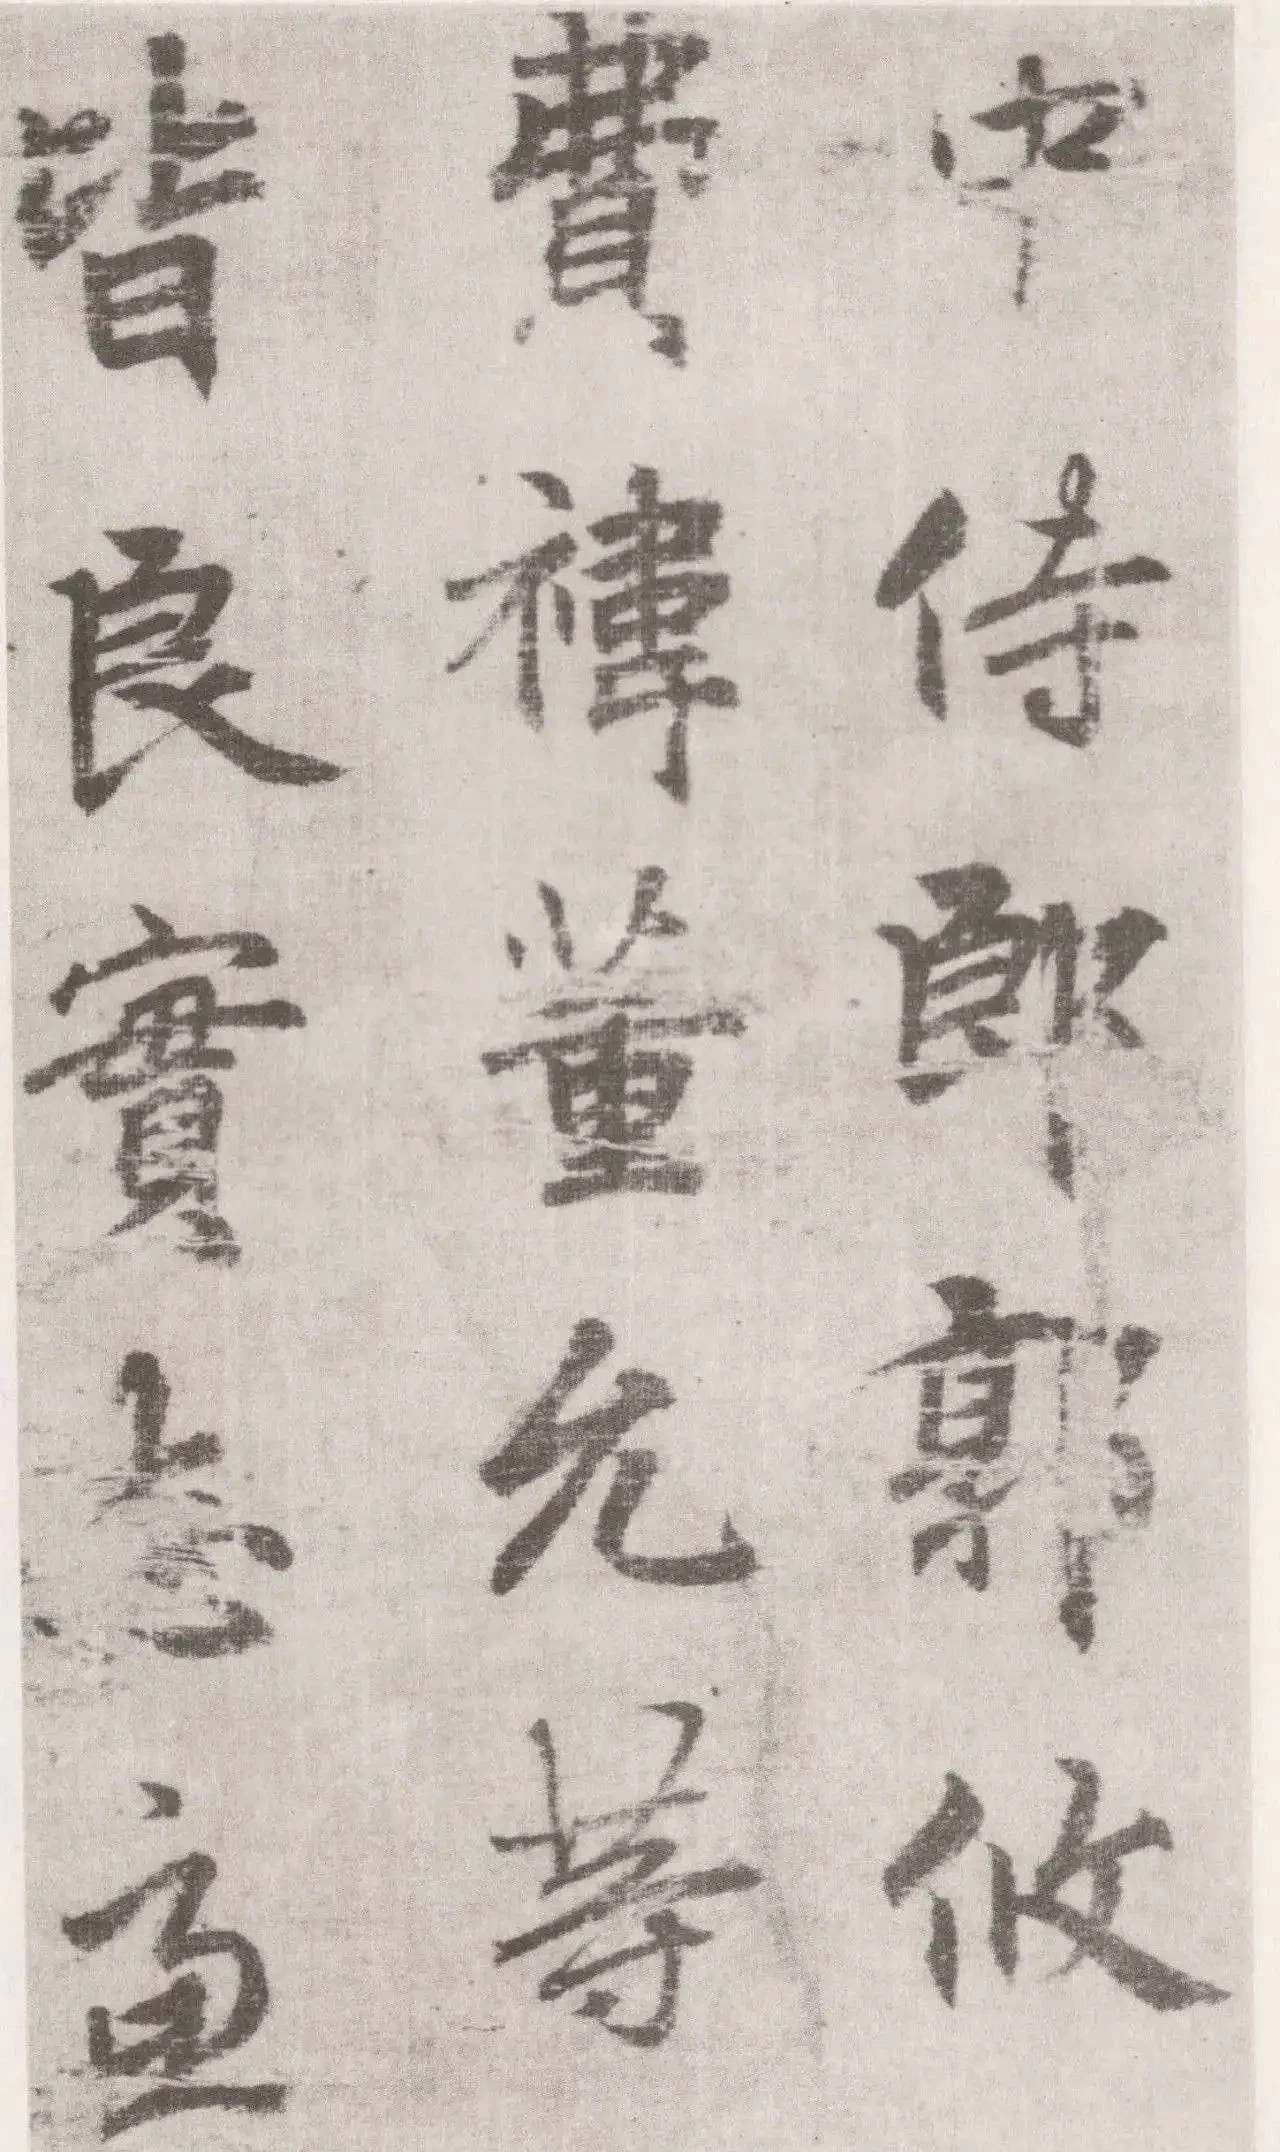 中侍郎郭攸
費禕董允等
皆良實志慮